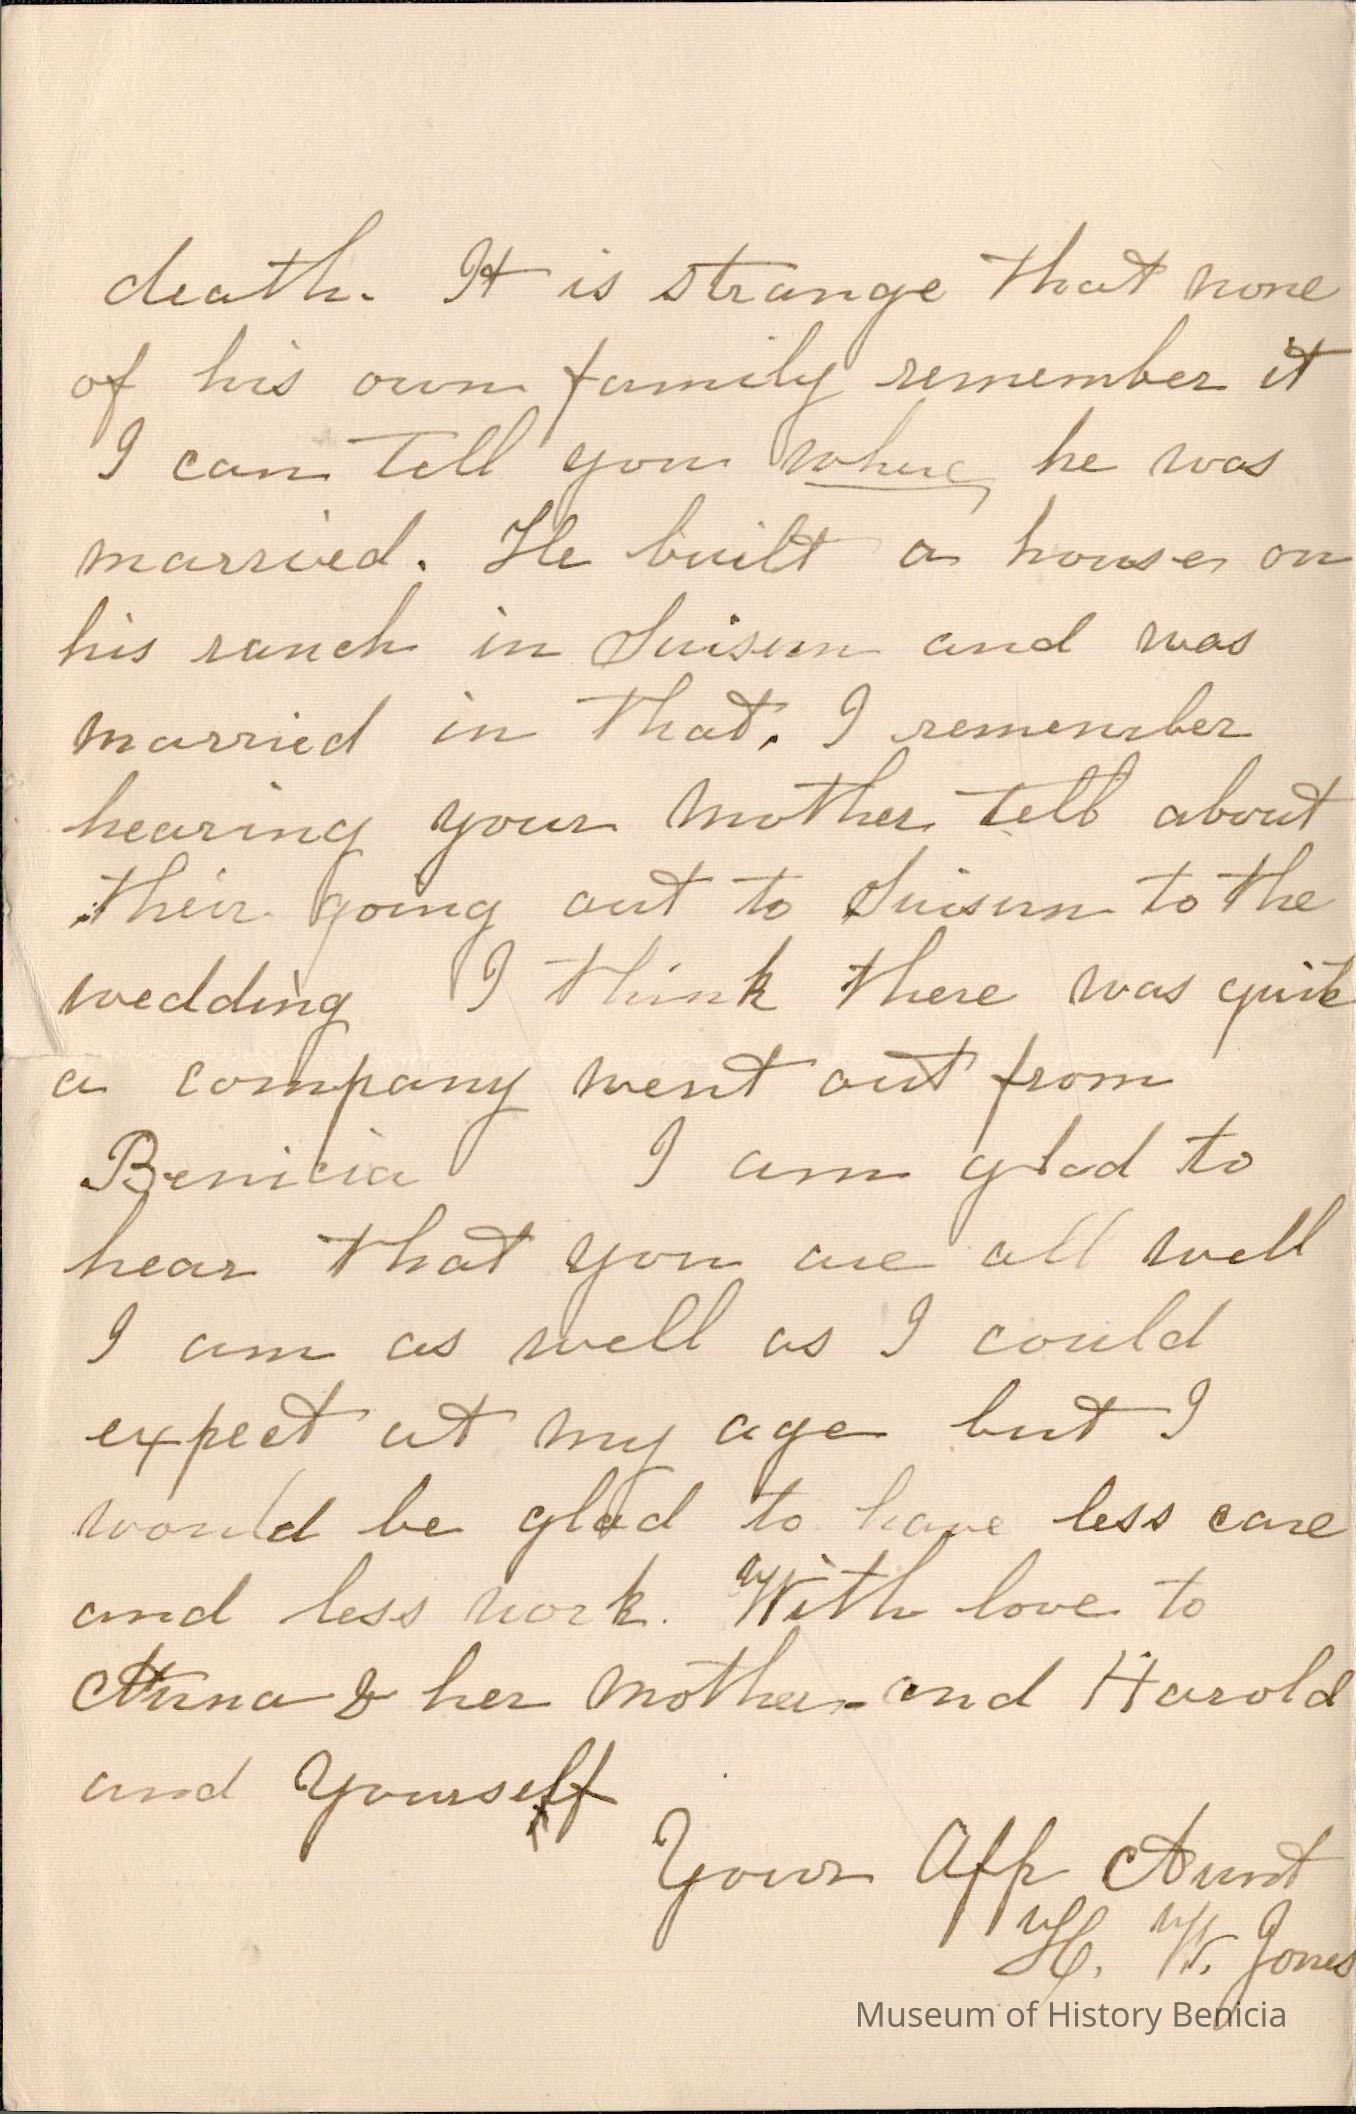 death. It is strange that none
of his own family remember it
I can tell you where he was
married. He built a house on
his ranch in Suisun and was
married in that. I remember
hearing your mother tell about
their going out to Suisun to the
wedding I think there was quite
a company went out from
Benicia I am glad to
hear that you are all well
I am as well as I could
expect at my age but I
would be glad to have less care
and less work. With love to
Anna & her mother and Harold
and Yourself
Your Aff Aunt
H. W. Jones
Museum of History Benicia